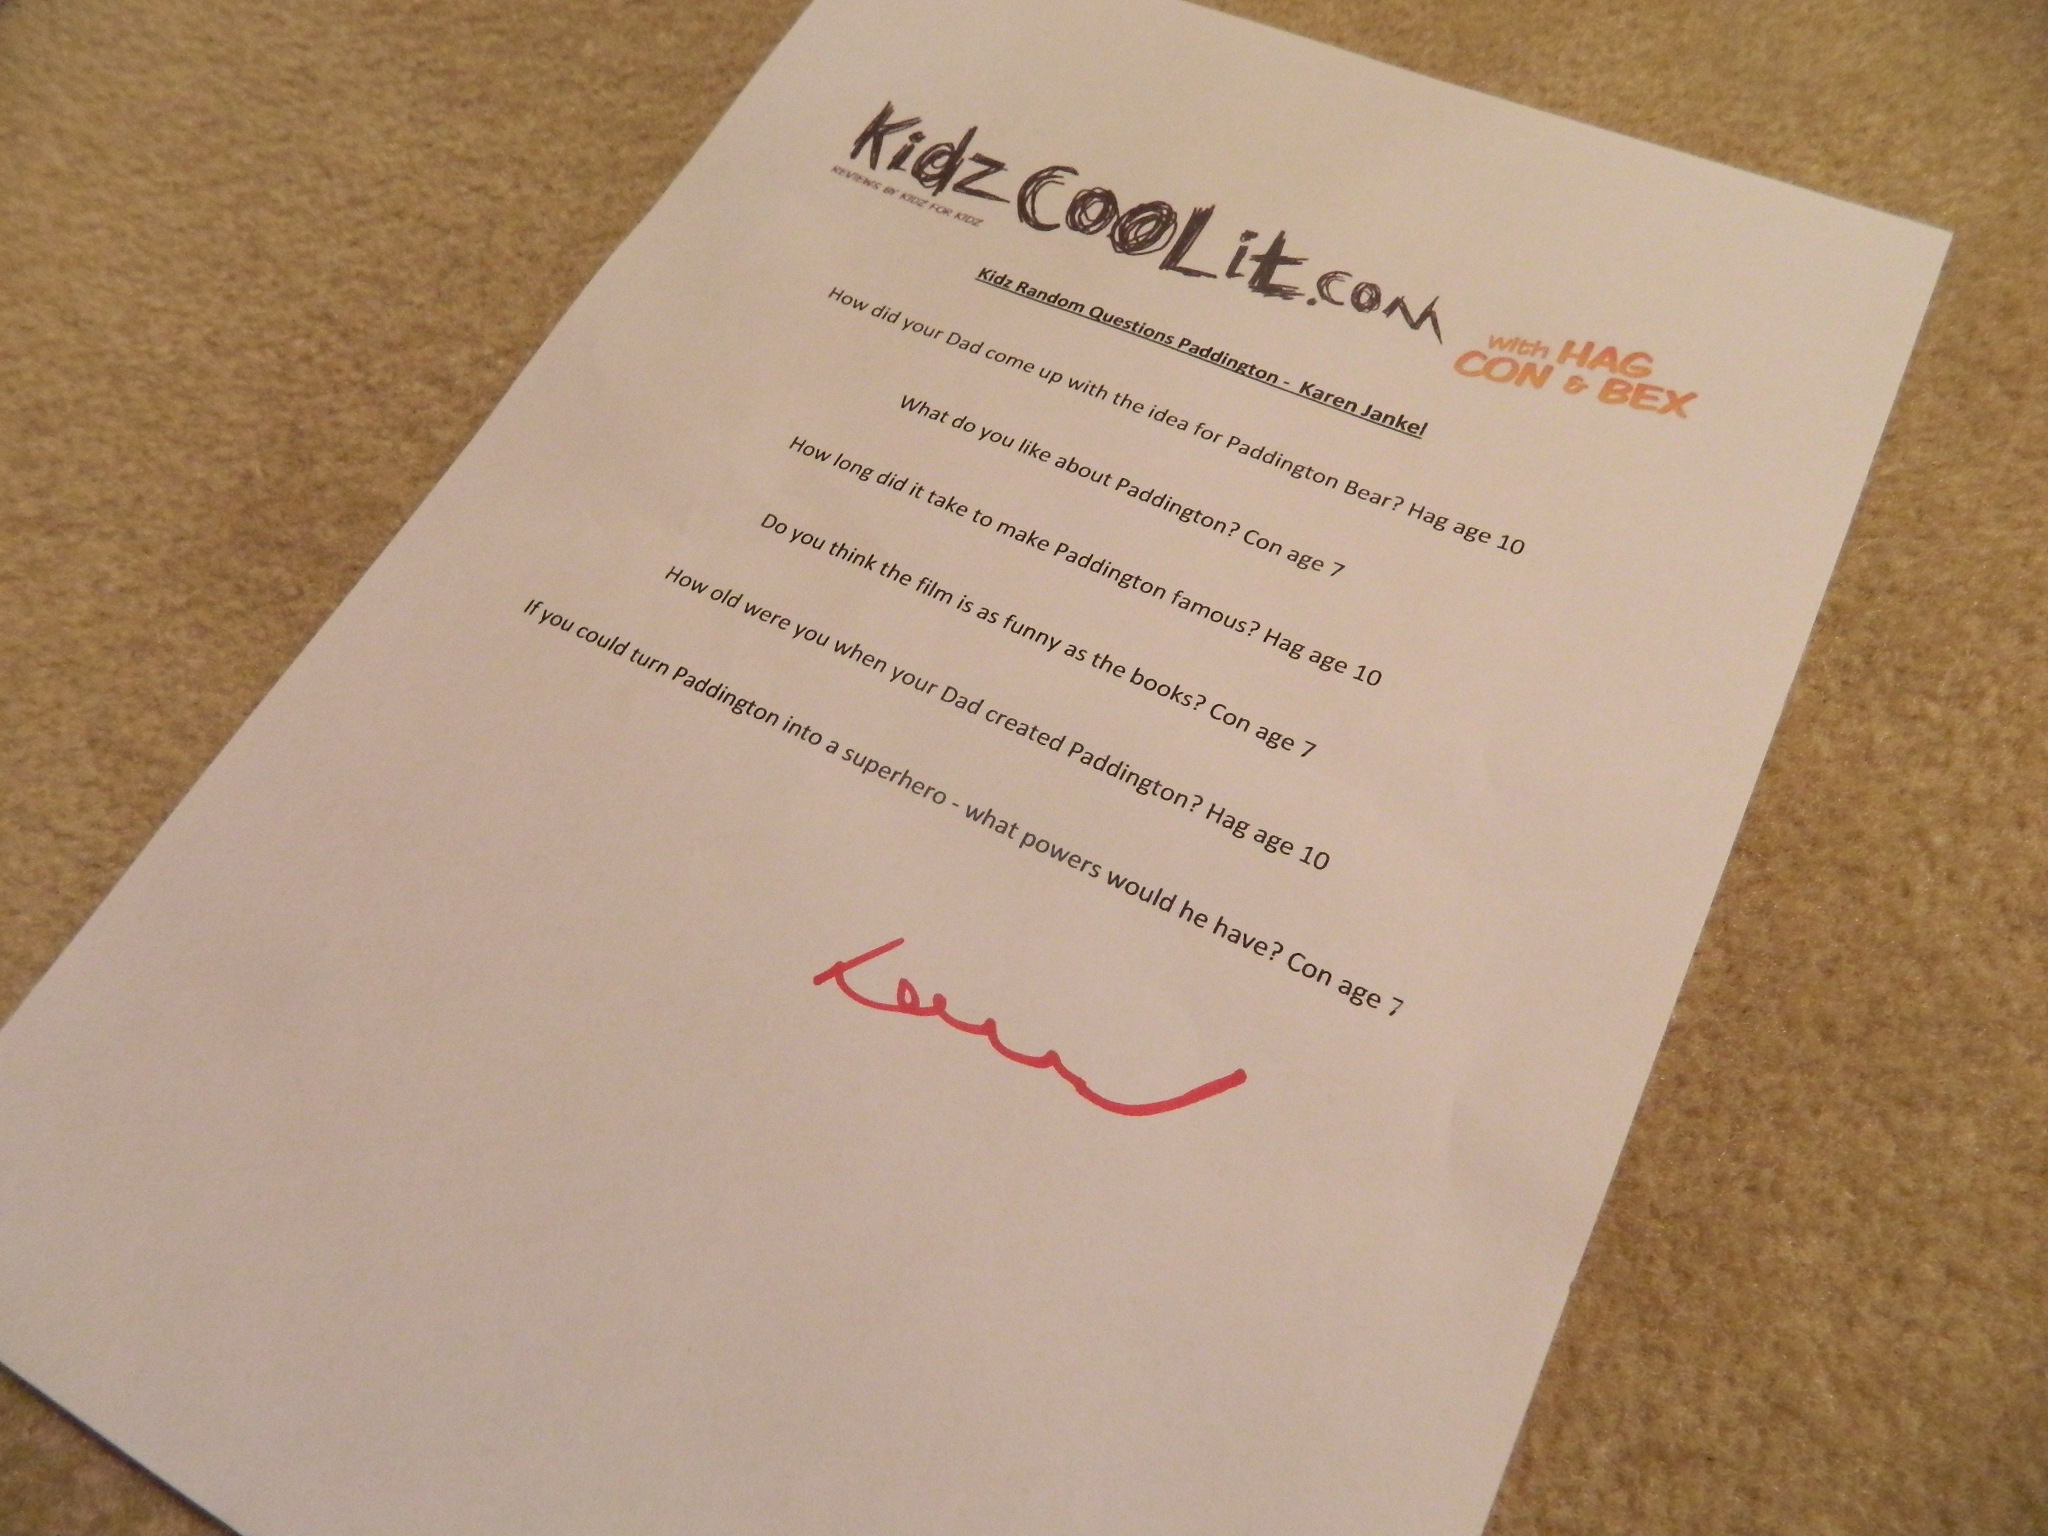 Kidz CooLit.com
REVIEWS BY KIDZ FOR KIDZ
with HAG
CON & BEX
Kidz Random Questions Paddington - Karen Jankel
How did your Dad come up with the idea for Paddington Bear? Hag age 10
What do you like about Paddington? Con age 7
How long did it take to make Paddington famous? Hag age 10
Do you think the film is as funny as the books? Con age 7
How old were you when your Dad created Paddington? Hag age 10
If you could turn Paddington into a superhero - what powers would he have? Con age 7
Karen